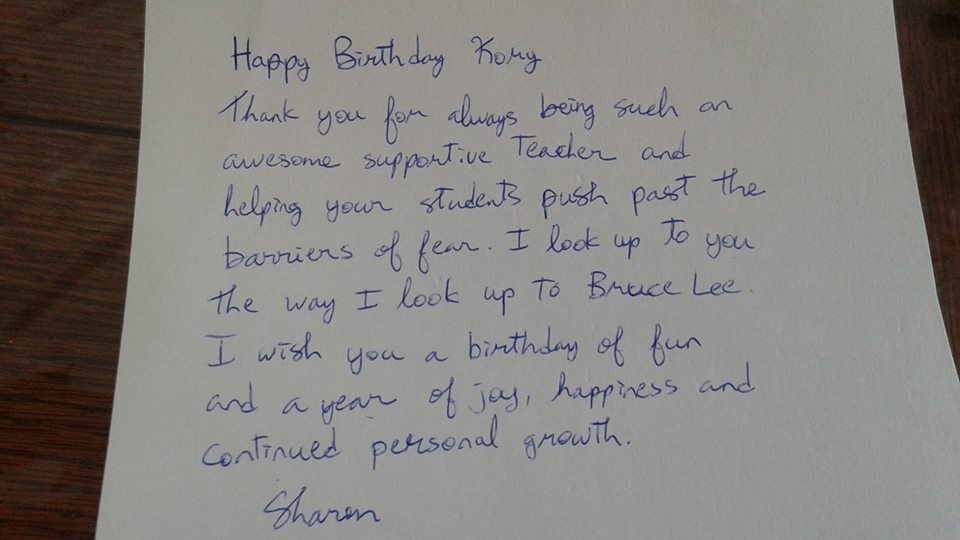 Happy Birthday Kory
Thank you for always being such an
awesome supportive Teacher and
helping your students push past the
barriers of fear. I look up to you
the way I look up to Bruce Lee.
I wish you a birthday of fun
and a year of joy, happiness and
continued personal growth.
Sharon